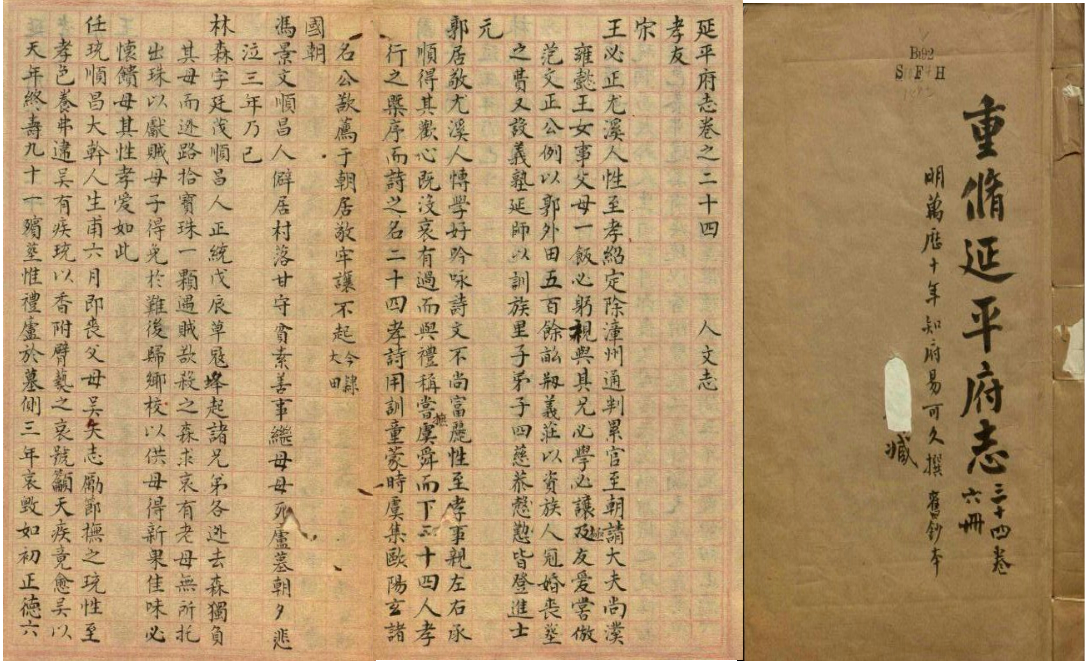 重脩延平府志 三十四卷 六冊
明萬厯十年知府易可久撰 舊鈔本
藏
B192
延平府志卷之二十四 人文志
孝友
宋
王必正尤溪人性至孝紹定除漳州通判累官至朝請大夫尚濮
雍懿王女事父母一飯必躬親與其兄必學必讓極友爱嘗倣
范文正公例以郭外田五百餘畝剏義莊以資族人冠婚喪塟
之費又設義塾延師以訓族里子弟子四慈恭愻懃皆登進士
元
郭居敬尤溪人愽學好吟咏詩文不尚富麗性至孝事親左右承
順得其歡心既沒哀有過而與禮稱嘗摭虞舜而下二十四人孝
行之槩序而詩之名二十四孝詩用訓童蒙時虞集歐陽玄諸
名公欲薦于朝居敬牢讓不起今隸大田
國朝
馮景文順昌人僻居村落甘守貧素善事繼母母死廬墓朝夕悲
泣三年乃已
林森字廷茂順昌人正統戊辰草宼蜂起諸兄弟各逃去森獨負
其母而逃路拾寳珠一顆遇賊欲殺之森求哀有老母無所托
出珠以獻賊母子得免於難後歸鄉校以供母得新果佳味必
懷饋母其性孝愛如此
任珫順昌大幹人生甫六月即喪父母吳矢志勵節撫之珫性至
孝色養弗逮吳有疾珫以香附臂爇之哀號籲天疾竟愈吳以
天年終壽九十一殯塟惟禮廬於墓側三年哀毀如初正德六